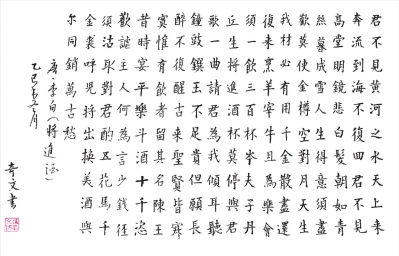 君不見黃河之水天上來
奔流到海不復回君不見
高堂明鏡悲白髮朝如青
絲暮成雪人生得意須盡
歡莫使金樽空對月天生
我材必有用千金散盡還
復來烹羊宰牛且為樂會
須一飲三百杯岑夫子丹
丘生將進酒杯莫停與君
歌一曲請君為我傾耳聽
鐘鼓饌玉不足貴但願長
醉不復醒古來聖賢皆寂
寞惟有飲者留其名陳王
昔時宴平樂斗酒十千恣
歡謔主人何為言少錢徑
須沽取對君酌五花馬千
金裘呼兒將出換美酒與
尔同銷萬古愁
唐·李白(將進酒)
乙巳月
奇文書